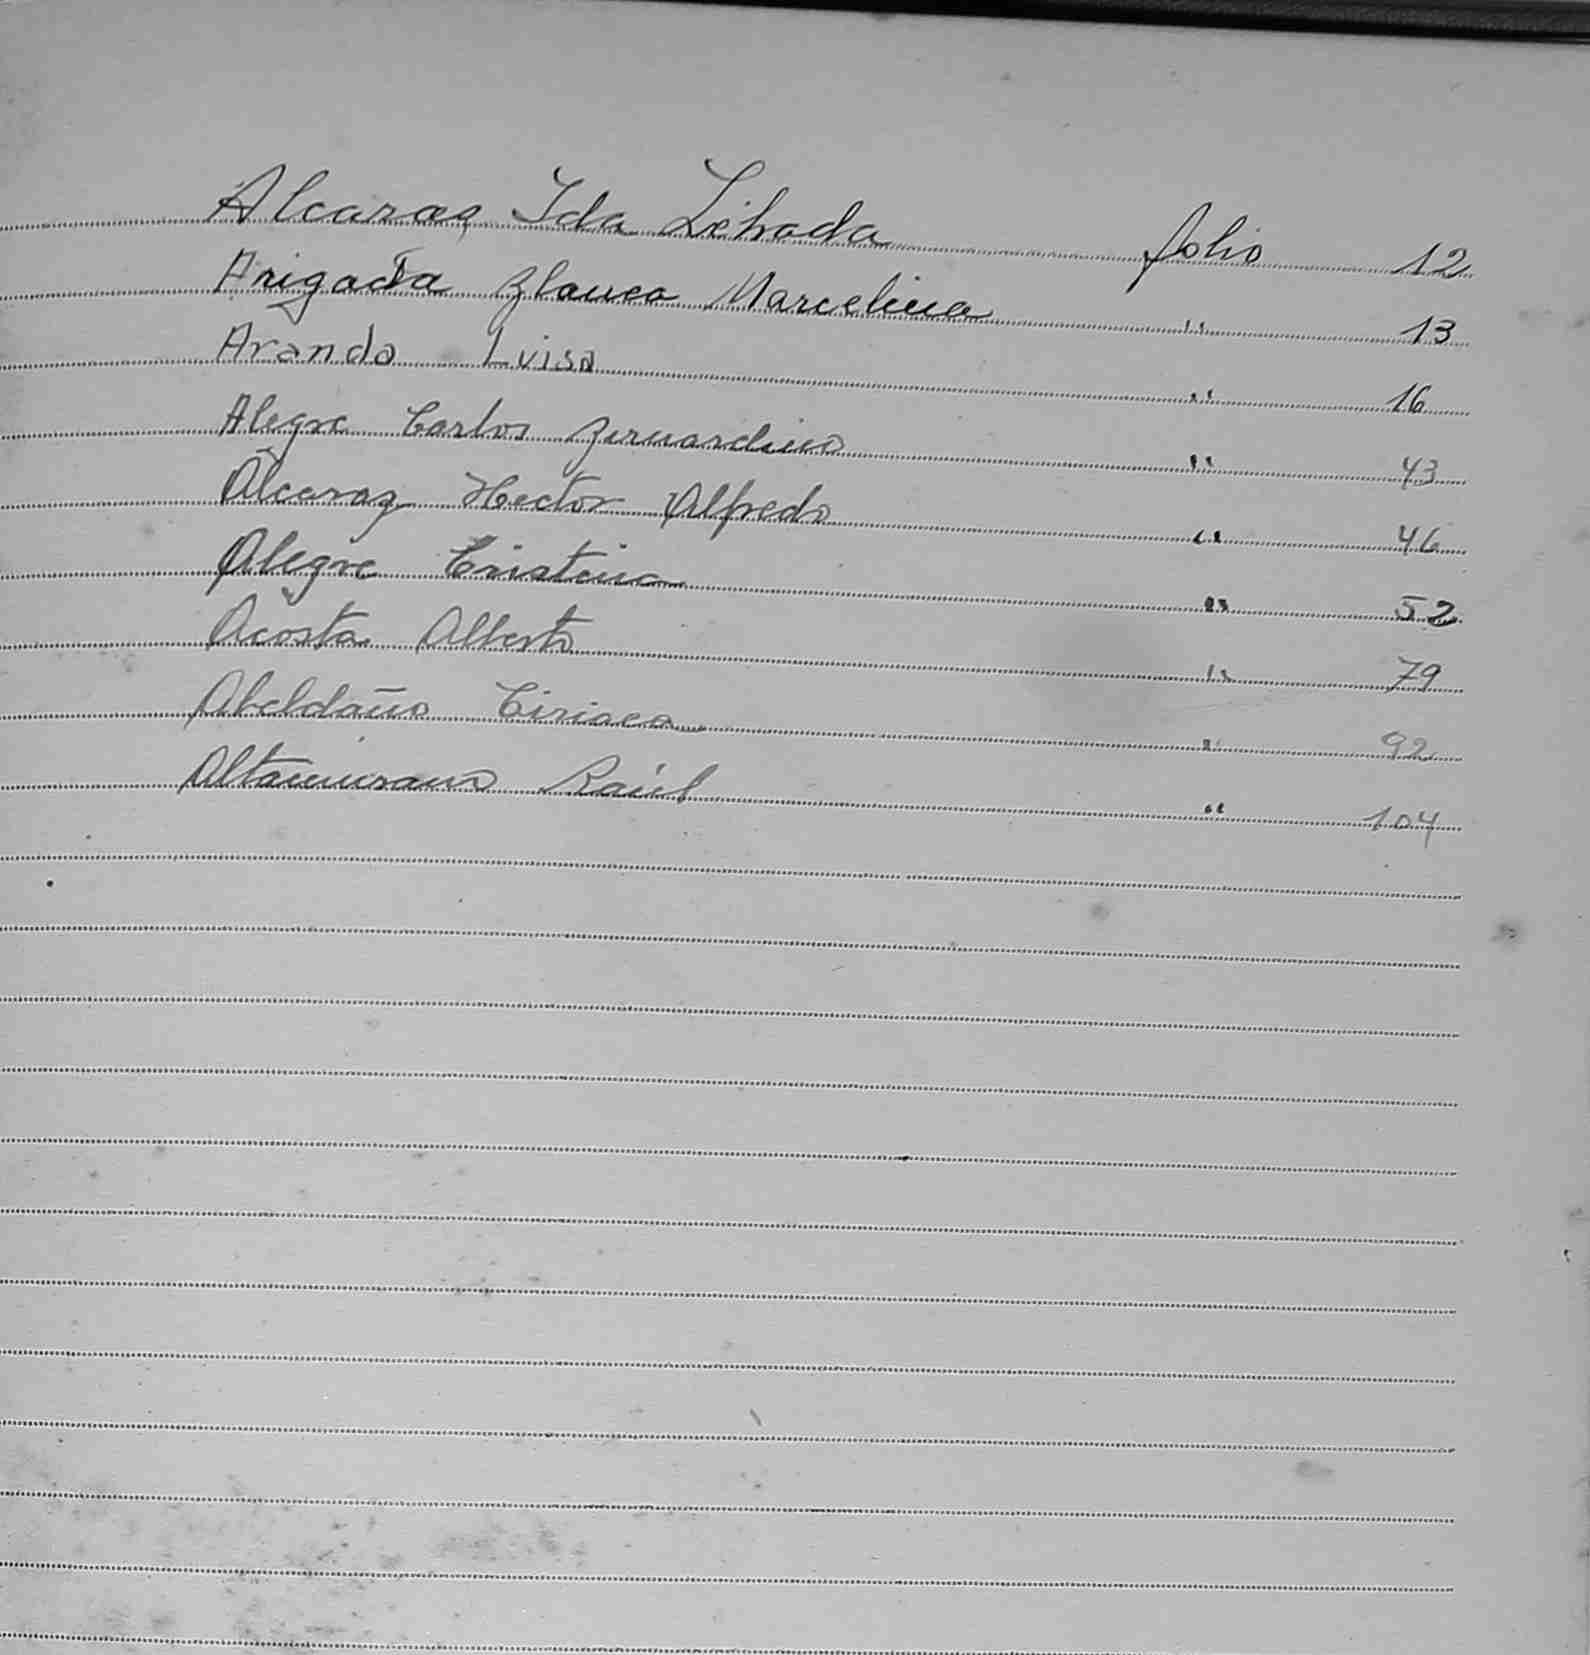 Alcaraz Ida Lihada folio 12
Arigada Blanca Marcelina " 13
Arando Luisa " 16
Alegre Carlos Bernardino " 43
Alcaraz Hector Alfredo " 46
Alegre Cristina " 52
Acosta Alberto " 79
Abeldaño Ciriaca " 92
Altamirano Raúl " 104